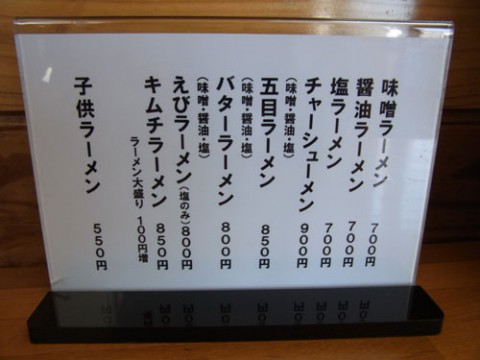 味噌ラーメン 700円
醤油ラーメン 700円
塩ラーメン 700円
チャーシューメン 900円
(味噌・醤油・塩)
五目ラーメン 850円
(味噌・醤油・塩)
バターラーメン 800円
(味噌・醤油・塩)
えびラーメン(塩のみ) 800円
キムチラーメン 850円
ラーメン大盛り 100円増
子供ラーメン 550円